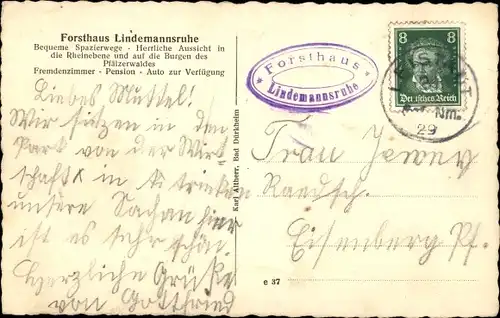 Forsthaus Lindemannsruhe
Bequeme Spazierwege - Herrliche Aussicht in
die Rheinebene und auf die Burgen des
Pfälzerwaldes
Fremdenzimmer - Pension - Auto zur Verfügung
Forsthaus
Lindemannsruhe
8 8
Deutsches Reich
Nm.
29
Liebes Muttel!
Wir sitzen in dem
Park von der Wirt
schaft in trinken
unsere Sachen hier
ist es sehr schön
Herzliche Grüße
von Gottfried
Karl Altherr, Bad Dürkheim
Frau
Eisenberg Pf.
e 37